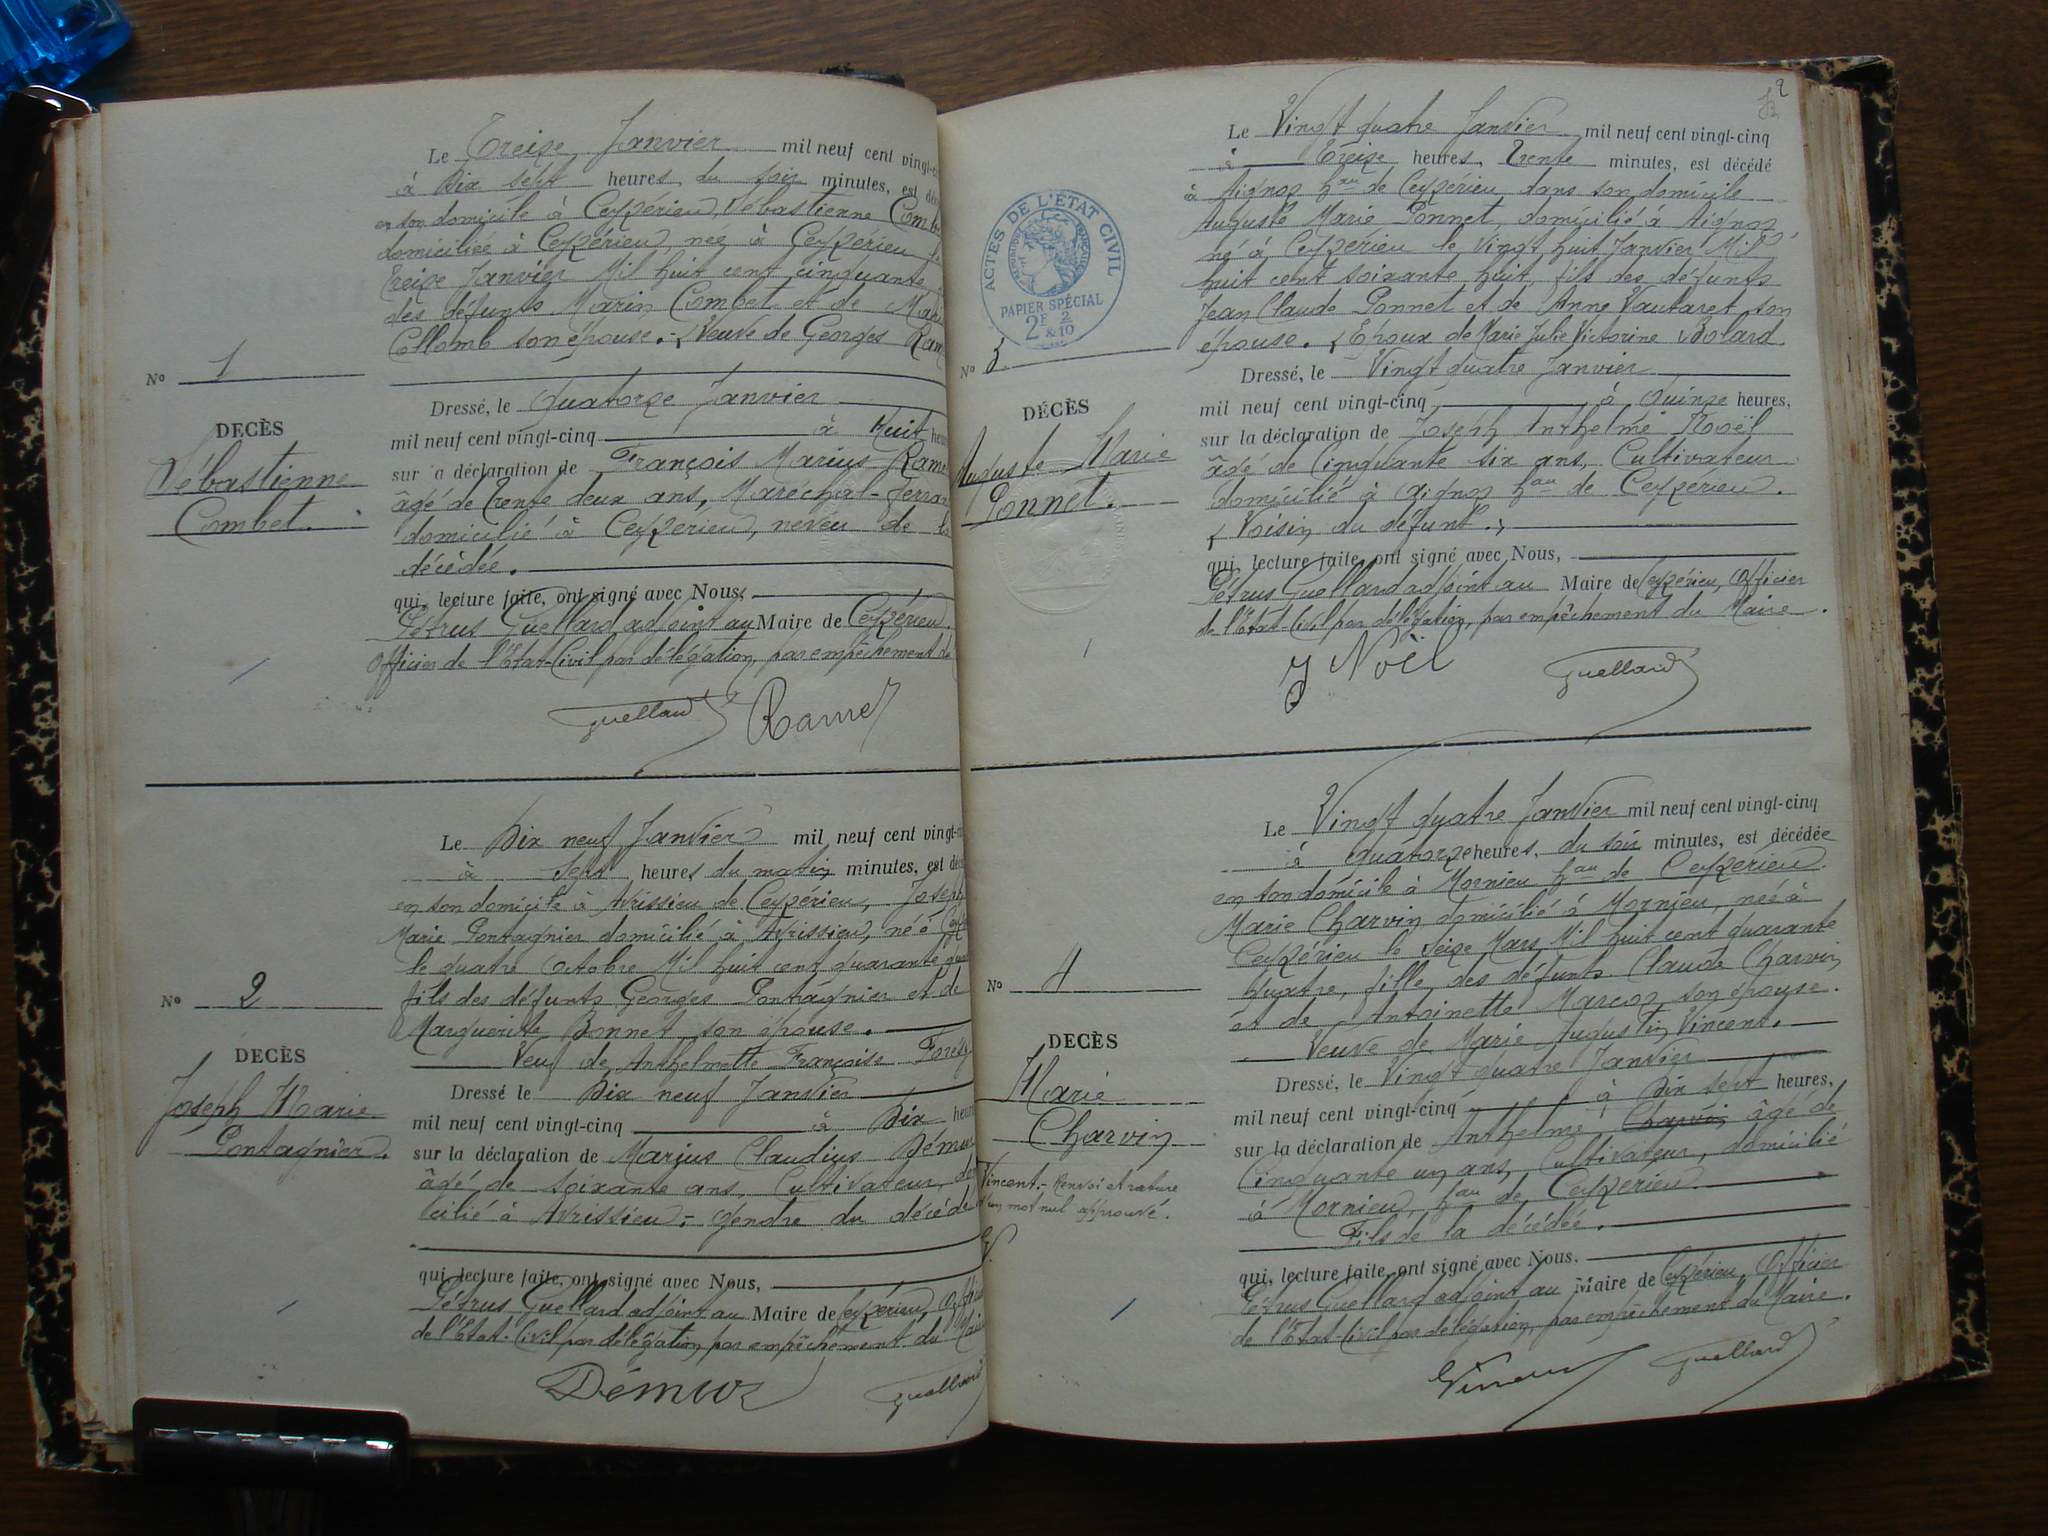 Le Treize Janvier mil neuf cent vingt-
à Dix sept heures du soir minutes, est
en son domicile à Ceyzérieu, Sébastienne
domiciliée à Ceyzérieu, née à Ceyzérieu
treize Janvier Mil huit cent cinquante
des défunts Marin Combet et de
Collomb son épouse. Veuve de Georges
No 1
DECÈS
Sébastienne
Combet.
Dressé, le Quatorze Janvier
mil neuf cent vingt-cinq à Huit
sur la déclaration de François Marius
âgé de trente deux ans, Maréchal-
domicilié à Ceyzerieu, neveu de la
décédée.
qui, lecture faite, ont signé avec Nous,
Pétrus Guelland adjoint au Maire de Ceyzérieu.
Officier de l'Etat-Civil par délégation, par empêchement du
Guelland
Le Dix neuf Janvier mil neuf cent vingt-
à Sept heures du matin minutes, est
en son domicile à Avrissieu de Ceyzérieu, Joseph
Marie Pontagnier domicilié à Avrissieu, né à
le quatre Octobre Mil huit cent quarante
fils des défunts Georges Pontagnier et de
Marguerite Bonnet son épouse.
Veuf de Anthelmette Françoise
No 2
DECÈS
Joseph Marie
Pontagnier.
Dressé le Dix neuf Janvier
mil neuf cent vingt-cinq à Dix
sur la déclaration de Marius Claudius
âgé de soixante ans, Cultivateur,
cilié à Avrissieu, gendre du décédé
qui, lecture faite, ont signé avec Nous,
Pétrus Guelland adjoint au Maire de Ceyzérieu,
de l'Etat-Civil par délégation, par empêchement du
Guelland
2
Le Vingt quatre Janvier mil neuf cent vingt-cinq
à Treize heures, trente minutes, est décédé
à Aignoz hau de Ceyzérieu dans son domicile
Auguste Marie Ponnet, domicilié à Aignoz
né à Ceyzérieu le Vingt huit Janvier Mil
huit cent soixante huit, fils des défunts
Jean Claude Ponnet et de Anne Vautaret son
épouse. Epoux de Marie Julie Victorine Bolard.
ACTES DE L'ÉTAT CIVIL
RÉPUBLIQUE FRANÇAISE
PAPIER SPÉCIAL
2F 2
& 10
No 3
DÉCÈS
Auguste Marie
Ponnet.
Dressé, le Vingt quatre Janvier
mil neuf cent vingt-cinq à Quinze heures,
sur la déclaration de Joseph Anthelme Noël
âgé de Cinquante six ans, Cultivateur
domicilié à Aignoz hau de Ceyzérieu.
Voisin du défunt.
qui, lecture faite, ont signé avec Nous,
Pétrus Guelland adjoint au Maire de Ceyzérieu, Officier
de l'Etat-Civil par délégation, par empêchement du Maire.
J Noël Guelland
Le Vingt quatre Janvier mil neuf cent vingt-cinq
à quatorze heures, du soir minutes, est décédée
en son domicile à Mornieu hau de Ceyzérieu
Marie Charvin domicilié à Mornieu, née à
Ceyzérieu le seize Mars Mil huit cent quarante
quatre, fille des défunts Claude Charvin
et de Antoinette Marcoz son épouse.
Veuve de Marie Augustin Vincent.
No 4
DECÈS
Marie
Charvin
Vincent.- Renvoi et rature
d'un mot nul approuvé.
Dressé, le Vingt quatre Janvier
mil neuf cent vingt-cinq à Dix sept heures,
sur la déclaration de Anthelme Charvin âgé de
Cinquante un ans, Cultivateur, domicilié
à Mornieu hau de Ceyzérieu.
Fils de la décédée.
qui, lecture faite, ont signé avec Nous.
Pétrus Guelland adjoint au Maire de Ceyzérieu, Officier
de l'Etat-Civil par délégation, par empêchement du Maire.
Vincent Guelland